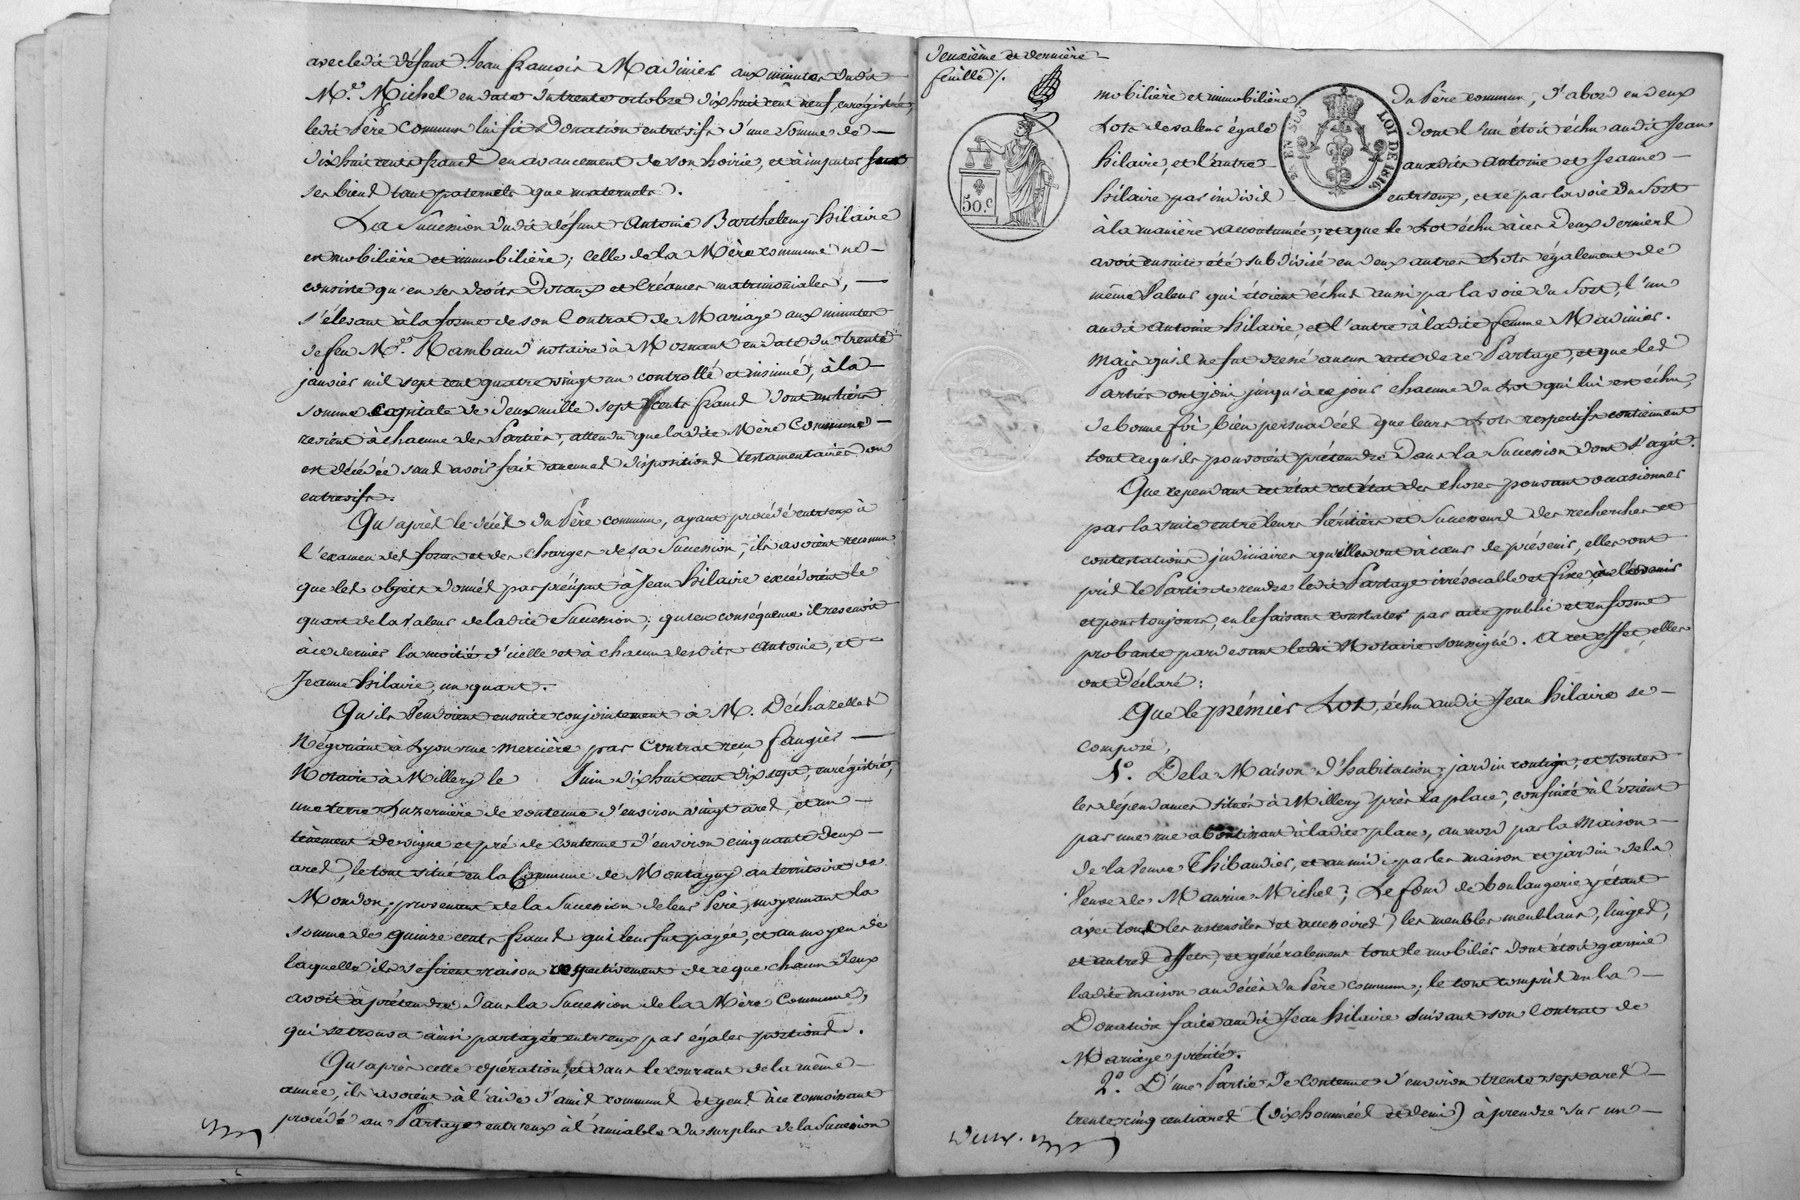 avec ledit défunt Jean François Madinier aux minutes dudit
M.e Michel en date du trente octobre dix huit cent neuf, enregistré,
ledit Père commun lui fit Donation entrevifs d'une Somme de
dix huit cents francs en avancement de son hoirie, et à imputer sur
ses biens tant paternels que maternels.
La Succession dudit défunt Antoine Barthelemy hilaire
est mobilière et immobilière; celle de la Mère commune ne
consiste qu'en ses droits Dotaux et Créances matrimoniales,
s'élevant à la forme de son Contrat de Mariage aux minutes
de feu M.e Rambaud notaire à Mornant en date du trente
janvier mil sept cent quatre vingt un controllé et insinué, à la
somme capitale de deux mille sept cents francs dont un tiers
revient à chacune des Parties, attendu que ladite Mère Commune
est décédée sans avoir fait aucunes dispositions testamentaires ou
entrevifs.
Qu'après le décès du Père commun, ayant procédé entr'eux à
l'examen des forces et des charges de sa Succession, ils avoient reconnu
que les objets donnés par préciput à Jean hilaire excédoient le
quart de la valeur de ladite Succession; qu'en conséquence il revenoit
à ce dernier la moitié d'icelle et à chacun desdits Antoine, et
Jeanne hilaire, un quart.
Qu'ils vendirent ensuite conjointement à M. Déchazelles
Négociant à Lyon rue mercière par Contrat reçu faugier
Notaire à Millery le Juin dix huit cent dix sept, enregistré,
une terre Luzernière de contenue d'environ vingt ares, et un
tènement de vigne et pré de contenue d'environ cinquante deux
ares, le tout situé en la Commune de Montagny au territoire de
Mondon, provenant de la Succession de leur Père, moyennant la
somme de quinze cents francs qui leur fut payée, et au moyen de
laquelle ils se firent raison respectivement de ce que chacun d'eux
avoit à prétendre dans la Succession de la Mère Commune,
qui se trouva ainsi partagée entr'eux par égales portions.
Qu'après cette opération, et dans le courant de la même
année, ils avoient à l'aide d'amis communs et gens à ce connoissant
procédé au Partage entr'eux à l'amiable du surplus de la Succession
deuxième et dernière
feuille %.
50.c
EN SUS
LOI DE 1816.
mobilière et immobilière du Père commun, d'abord en deux
Lots de valeur égale dont l'un étoit échu audit Jean
hilaire, et l'autre auxdits Antoine et Jeanne
hilaire par indivis entr'eux, et ce par la voie du Sort
à la manière accoutumée; et que le Lot échu à ces deux derniers
avoit ensuite été subdivisé en deux autres Lots également de
même valeur qui étoient échus aussi par la voie du Sort, l'un
audit Antoine hilaire, et l'autre à ladite femme Madinier.
Mais qu'il ne fut dressé aucun acte de ce Partage, et que les
Parties ont joui jusqu'à ce jour chacune du Lot qui lui est échu,
de bonne foi, bien persuadées que leurs Lots respectifs contiennent
tout ce qu'ils pouvoient prétendre dans la Succession dont s'agit.
Que cependant cet état cet état des choses pouvant occasionner
par la suite entre leurs héritiers et Successeurs des recherches et
contestations judiciaires qu'elles ont à cœur de prévenir, elles ont
pris le Parti de rendre ledit Partage irrévocable et fixe, à l'avenir
et pour toujours, en le faisant constater par acte public et en forme
probante pardevant ledit Notaire soussigné. A cet effet, elles
ont déclaré:
Que le prémier Lot, échu audit Jean hilaire se
compose,
1.o De la Maison d'habitation, jardin contigu, et toutes
les dépendances situées à Millery près la place, confinée à l'orient
par une rue aboutissant à ladite place, au nord par la Maison
de la veuve Thibaudier, et au midi par les maison et jardin de la
veuve de Maurice Michel; Le fond de boulangerie y étant
avec tous les ustensiles et accessoires, les meubles meublans, linges,
et autres effets, et généralement tout le mobilier dont étoit garnie
ladite maison au décès du Père commun; le tout compris en la
Donation faite audit Jean hilaire suivant son Contrat de
Mariage précité.
2.o D'une Partie de contenue d'environ trente sept ares
trente cinq centiares (dix hommées et demi) à prendre sur un